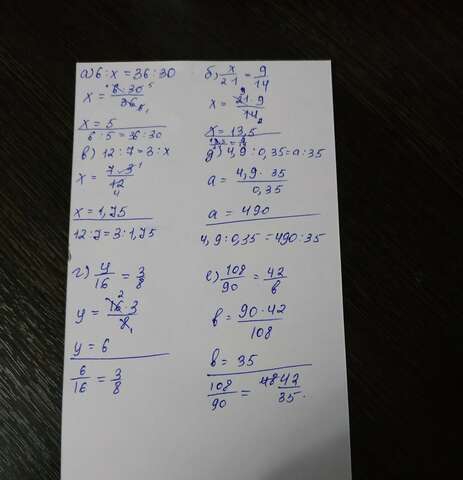 а) 6 : x = 36 : 30
x = 6·30 / 36
x = 5
6 : 5 = 36 : 30
б) x/21 = 9/14
x = 21·9 / 14
x = 13,5
в) 12 : 7 = 3 : x
x = 7·3 / 12
x = 1,75
12 : 7 = 3 : 1,75
д) 4,9 : 0,35 = a : 35
a = 4,9·35 / 0,35
a = 490
4,9 : 0,35 = 490 : 35
г) y/16 = 3/8
y = 16·3 / 8
y = 6
6/16 = 3/8
е) 108/90 = 42/в
в = 90·42 / 108
в = 35
108/90 = 42/35